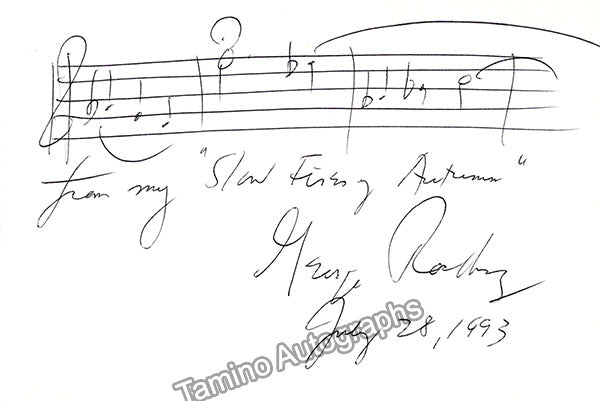 from my "Slow Fires of Autumn"
George Rochberg
July 28, 1993
Tamino Autographs